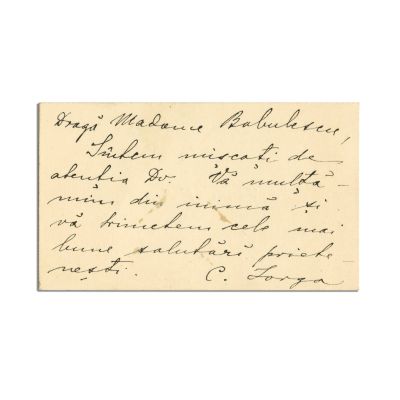 Dragă Madame Babulescu,
Sîntem mișcați de
atenția Dv. Vă mulțu-
mim din inimă și
vă trimetem cele mai
bune salutări priete-
nești. C. Iorga